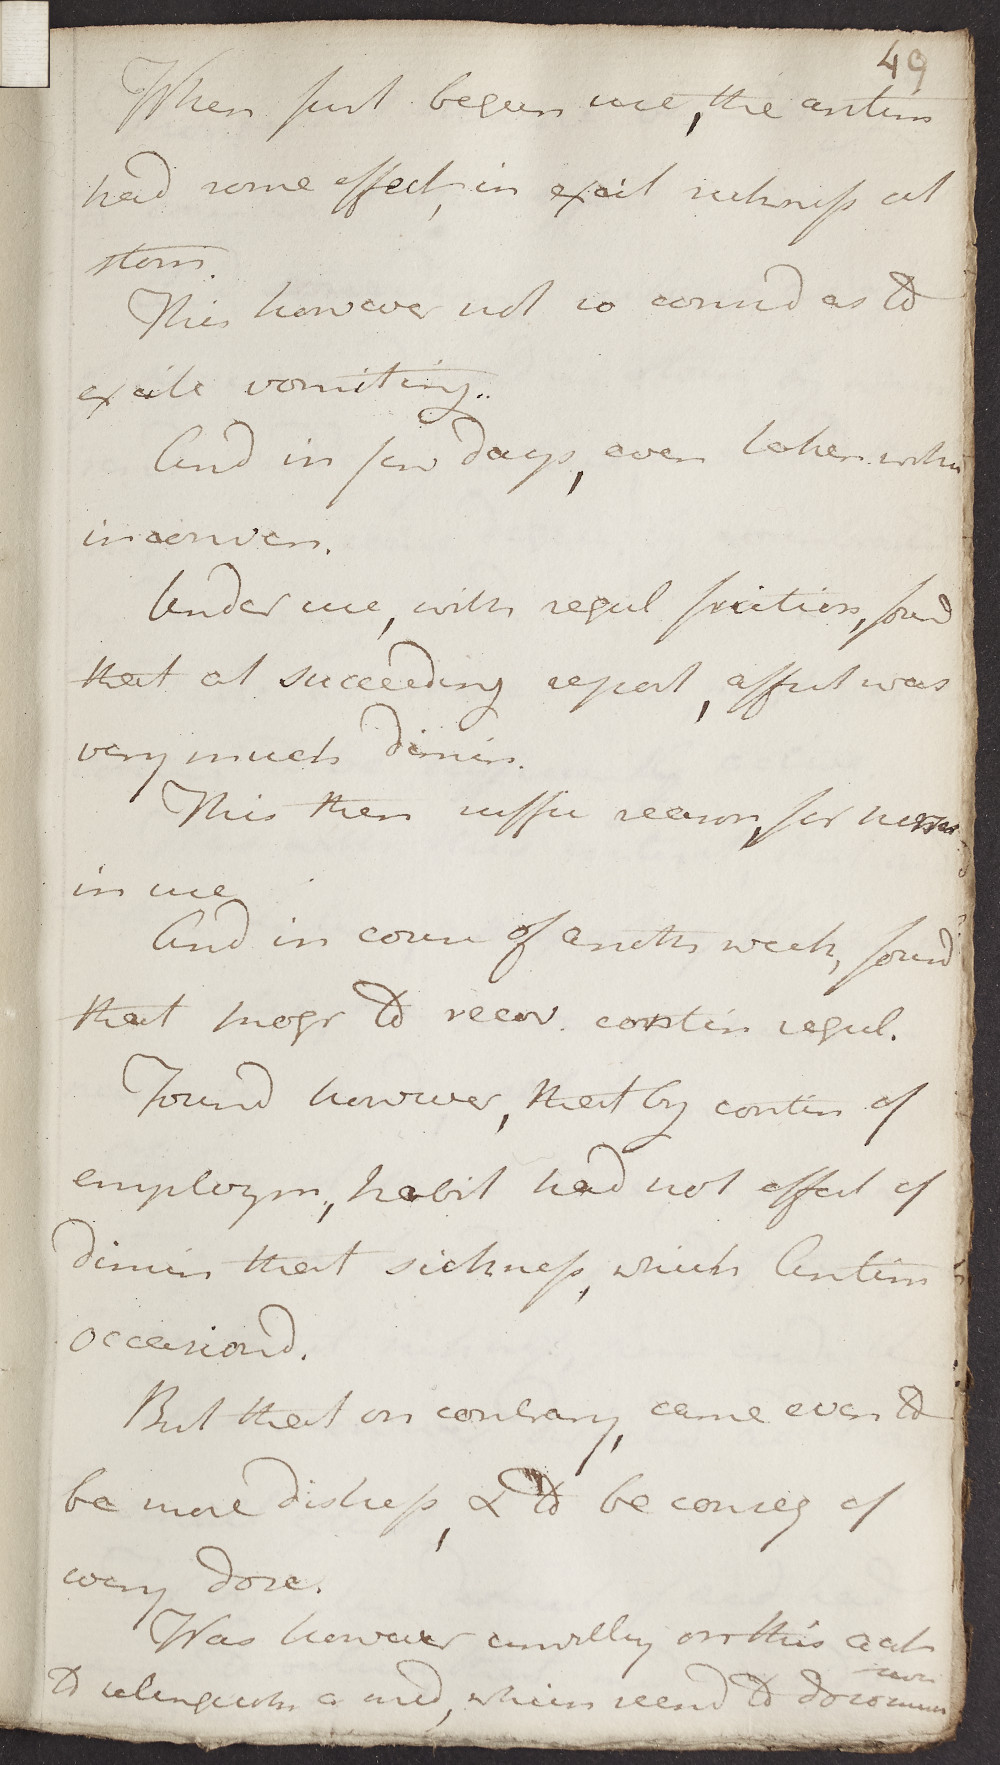 49
When first begun use, the antim
had some effect, in excit sickness at
stom.
This however not so consid as to
excite vomiting.
And in few days, even taken withou
inconven.
Under use, with regul friction, found
that at succeeding report, affect was
very much dimin.
This then suffic reason, for
in use
And in course of anoth week, found
that progr to recov. contin regul.
Found however, that by contin of
employm, habit had not effect of
dimin that sickness, which Antim
occasiond.
But that on contrary, came even to
be more distress, & to be conseq of
every dose.
Was however unwilling on this acct
to relinquish a med, which seemd to do so much
serv